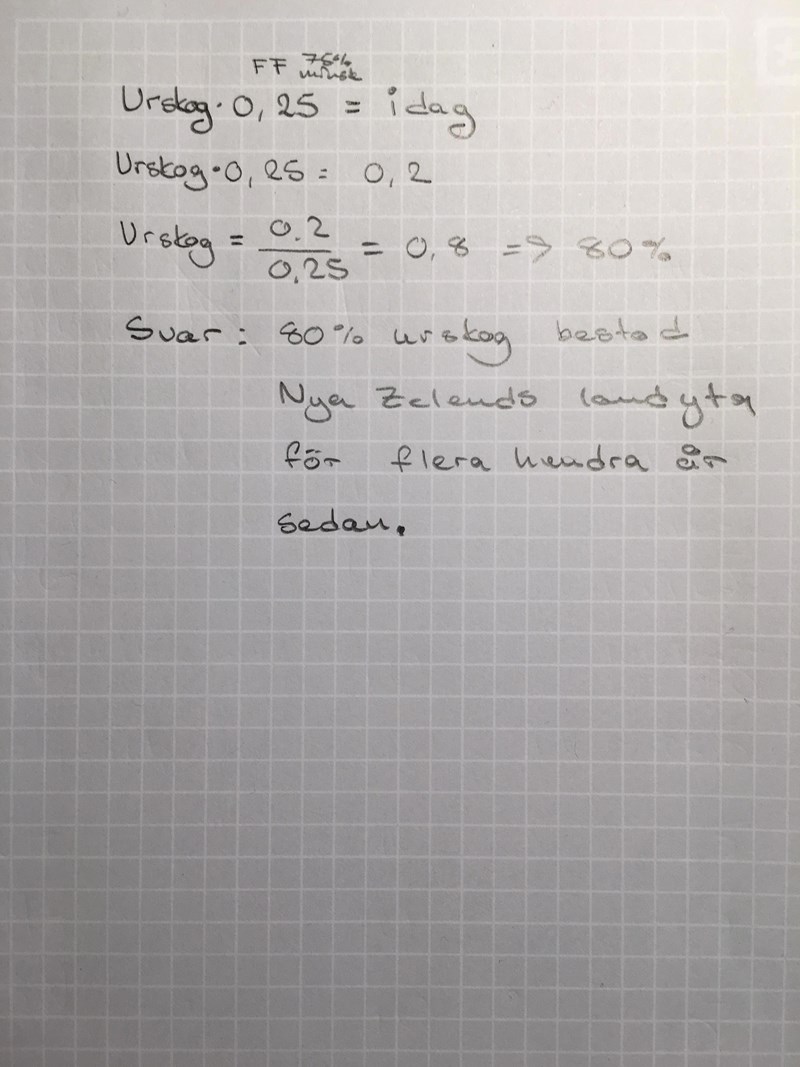 FF 75%
minsk
Urskog · 0,25 = idag
Urskog · 0,25 = 0,2
Urskog = 0.2 / 0,25 = 0,8 => 80%
Svar: 80% urskog bestod
Nya Zelands landyta
för flera hundra år
sedan.